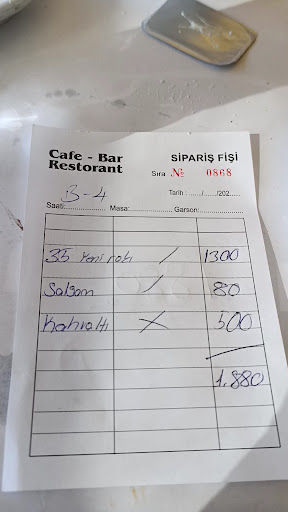 Cafe - Bar
Restorant
SİPARİŞ FİŞİ
Sıra № 0868
B-4
Tarih : ....../....../202.....
Saati:.................. Masa:.................. Garson:..................
35 Yeni rakı / 1300
Şalgam / 80
Kahvaltı X 500
1.880